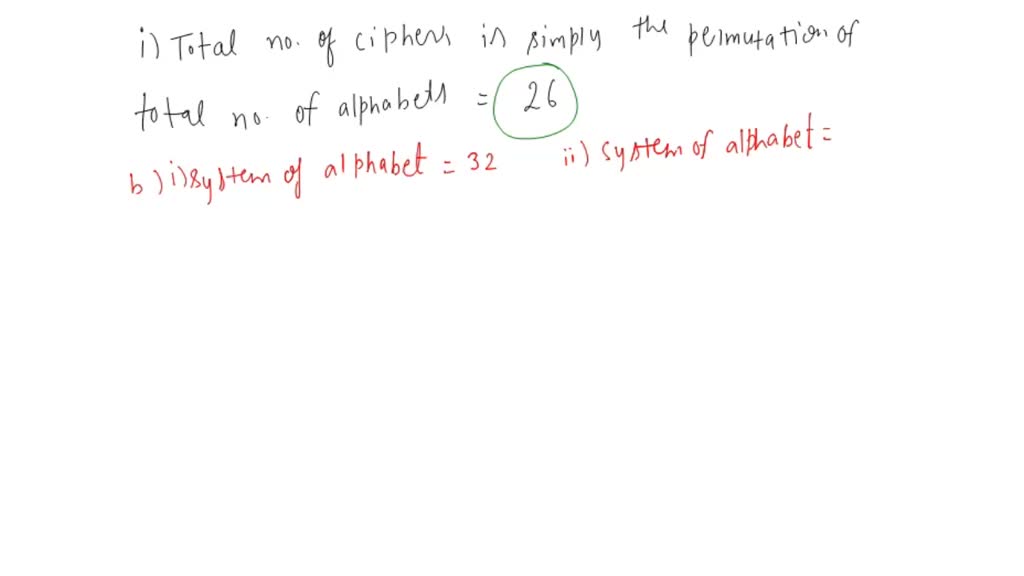 i) Total no. of ciphers is simply the permutation of
total no. of alphabets = 26
b) i) system of alphabet = 32 ii) system of alphabet =